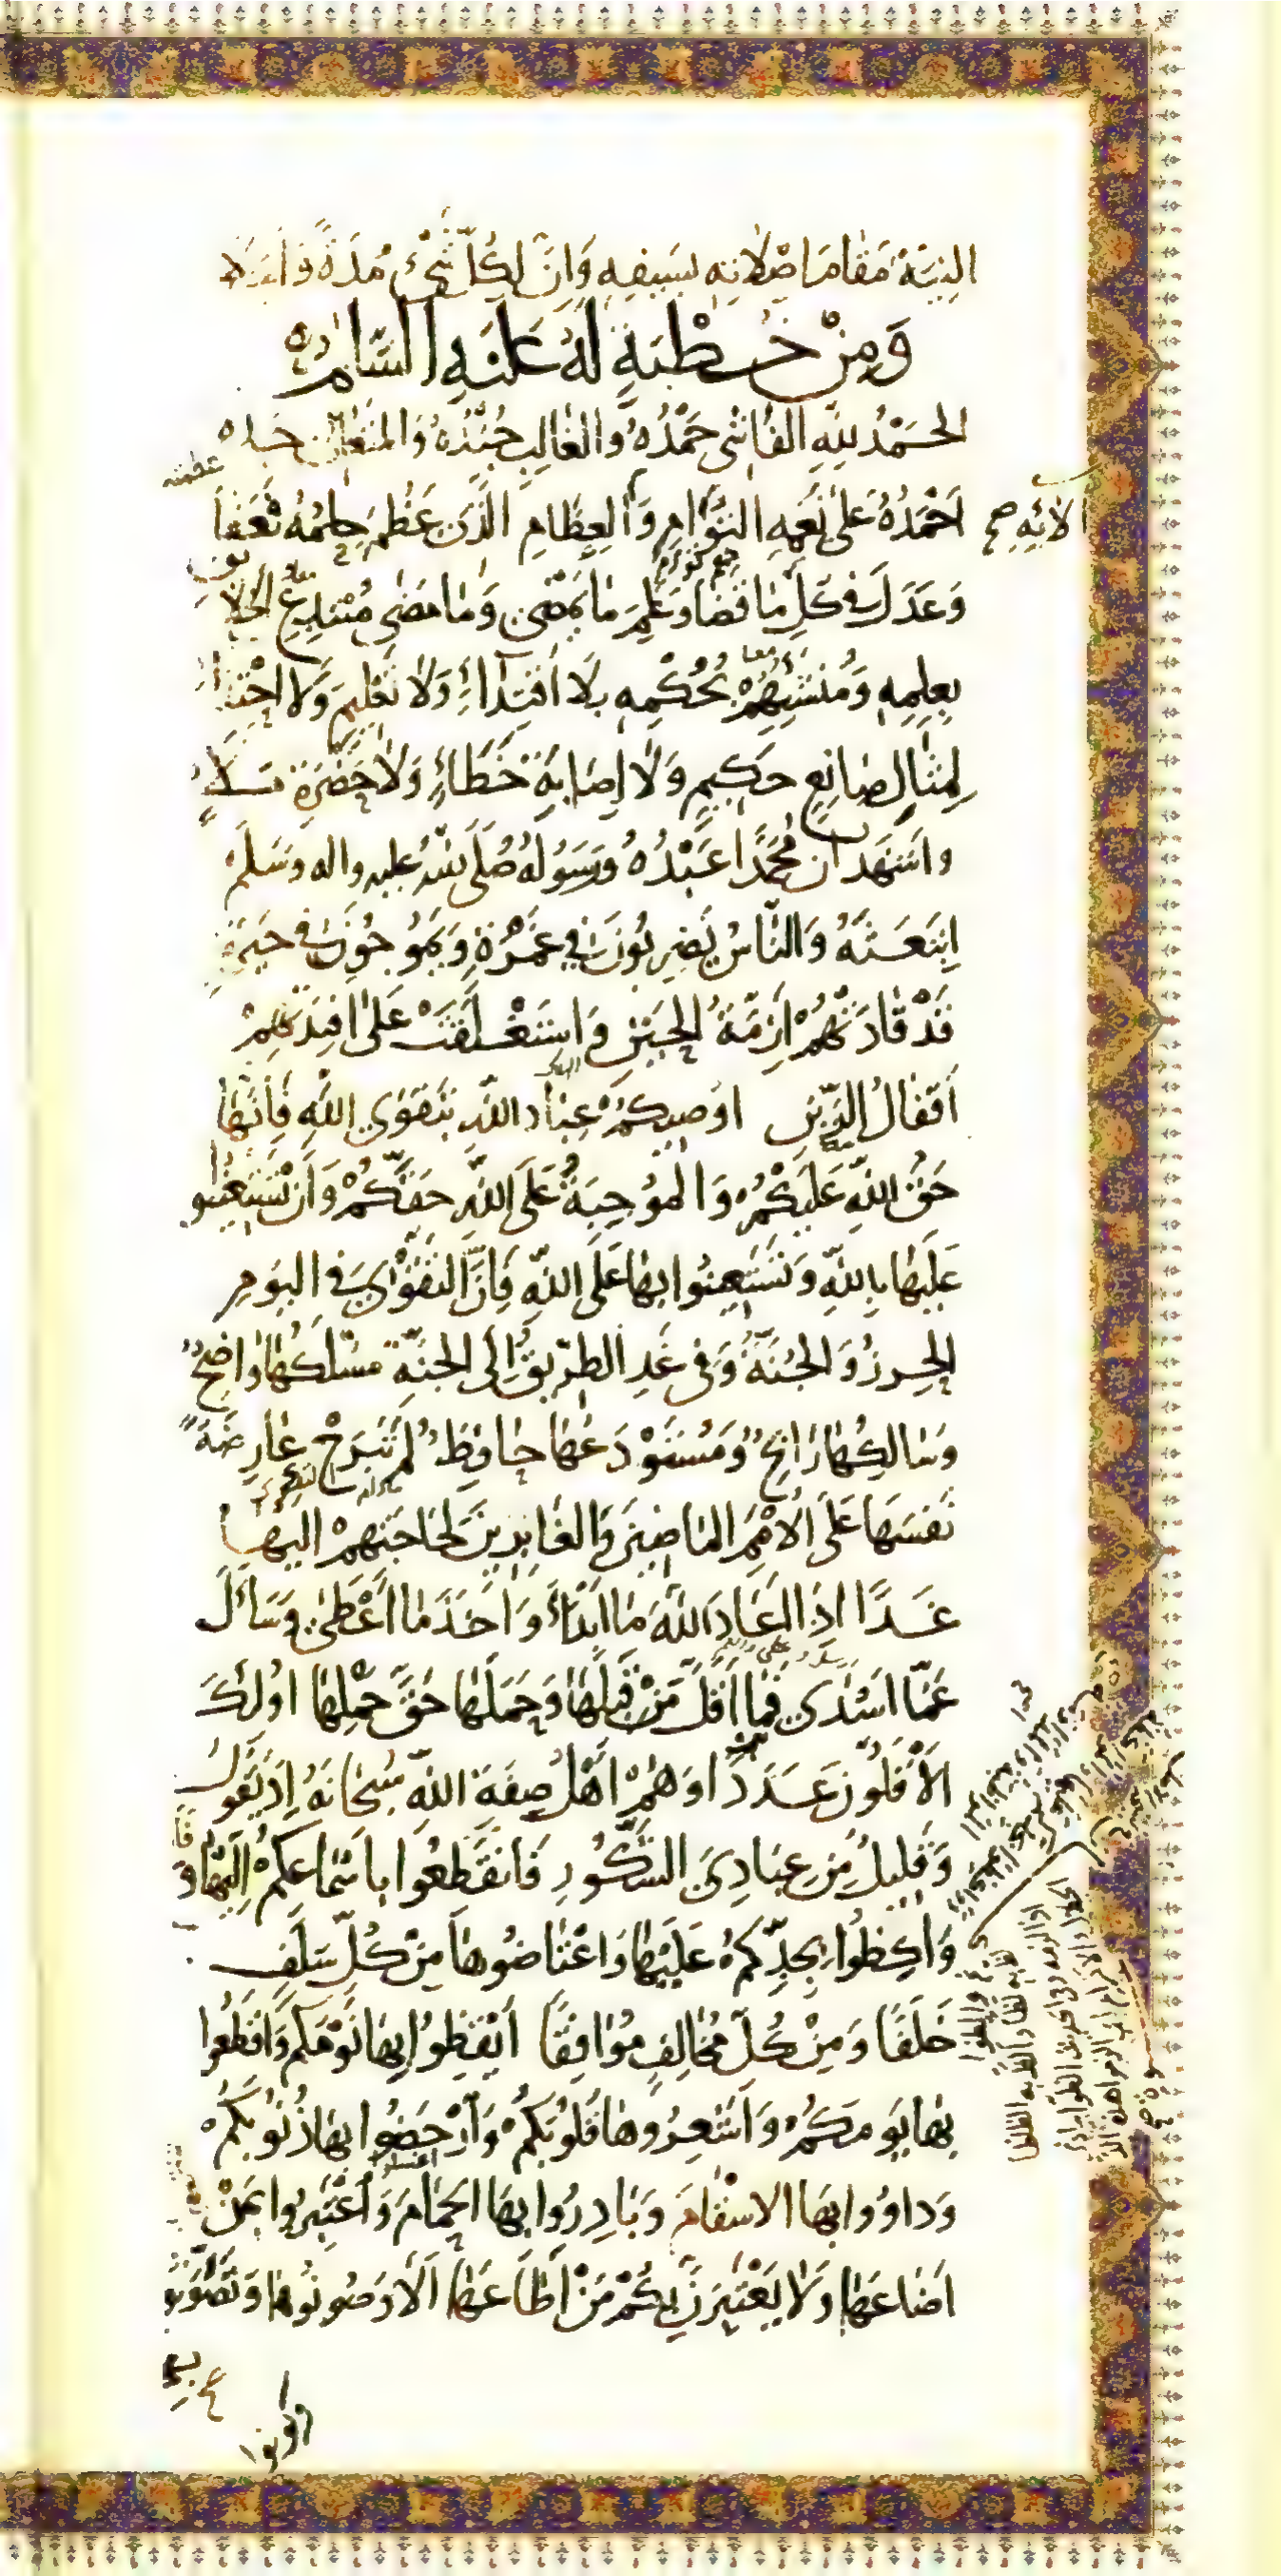 النِيَّةُ مَقَامَ اصْلَاتِهِ بِسَيفِهِ وَاِنَّ لِكُلِّ شَيْءٍ مُدَةً وَاَجَلاً
وَمِنْ خُطْبَةٍ لَهُ عَلَيْهِ السَّلَامُ
الحَمْدُ لِلّهِ الفَاشِي حَمْدُهُ وَالغَالِبِ جُنْدُهُ وَالمتَعَالِي جَدُّه
عظمته
الائِهِ صح
اَحْمَدُهُ عَلى نِعَمِهِ التُّوَامِ وَالعِظَامِ الَّذي عَظُمَ حِلمُهُ فَعَفَا
وَعَدَلَ فِي كلِّ مَا قَضَا وَعَلِمَ مَا يَمْضِي وَمَا مَضٰى مُبْتَدِعِ الخَلَا
بِعِلمِهِ وَمُنْشِئِهِمْ بِحُكْمِهِ بِلَا اقْتِدَاءٍ وَلَا تَعْلِيمٍ وَلَا احْتِذَاءٍ
لِمِثَالِ صَانِعٍ حَكِيمٍ وَلَا اِصَابَةِ خَطَاءٍ وَلَا حَضْرَةِ مَلَاءٍ
وَاَشهَد ان مُحَمَّدًا عَبْدُهُ وَرَسُولُهُ صَلَّى اللهُ عليه واله وَسَلَّم
ابْتَعَثَهُ وَالنَّاسُ يَضرِبُونَ فِي غَمْرَةٍ وَيَموُجُونَ فِي حَيرَةٍ
قَدْ قَادَتْهُمْ اَزِمَّةُ الحَيْنِ وَاستَغْلَقَتْ عَلَى افئِدَتِهِمْ
اَقفَالُ الرَّينِ اُوصِيكُمْ عِبَادَ اللهِ بِتَقوَى اللهِ فَاِنَّهَا
حَقُّ اللهِ عَلَيْكُمْ وَالموُجِبَةُ عَلَى اللهِ حَقَّكُمْ وَاَن تَسْتَعِينُوا
عَلَيهَا بِاللهِ وَتَستَعِينُوا بِهَا عَلَى اللهِ فَاِنَّ التَّقْوٰى فِي اليَومِ
الحِرزُ وَالجُنَّةُ وَفِي غَدٍ الطَرِيقُ اِلَى الجَنَّةِ مَسْلَكُهَا وَاضِحٌ
وَسَالِكُهَا رَابِحٌ وَمُسْتَوْدَعُهَا حَافِظٌ لَم تَبْرَحْ عَارِضَةً
نَفسَهَا عَلَى الأُمَمِ المَاضِينَ وَالغَابِرِينَ لِحَاجَتِهِمْ اِلَيهَا
غَدًا اِذَا اَعَادَ اللهُ مَا اَبْدَأَ وَاَخَذَ مَا اَعْطٰى وَسَأَلَ
عَمَّا اَسْدٰى فَمَا اَقَلَّ مَنْ قَبِلَهَا وَحَمَلَهَا حَقَّ حَمْلِهَا اُولٰئِكَ
الأَقَلُّونَ عَدَدًا وَهُمْ اَهْلُ صِفَةِ اللهِ سُبْحَانَهُ اِذْ يَقُولُ
وَقَلِيلٌ مِن عِبَادِيَ الشَّكُورِ فَانقَطِعُوا بِاَسْمَاعِكُمْ اِلَيْهَا
وَاكِظُّوا بِجِدِّكُمْ عَلَيْهَا وَاعْتَاضُوهَا مِنْ كُلِّ سَلَفٍ
خَلَفًا وَمِنْ كُلِّ مُخَالِفٍ مُوَافِقًا اَيْقِظُوا بِهَا نَوْمَكُم وَاقطَعُوا
بِهَا يَومَكُمْ وَاَشْعِرُوهَا قُلُوبَكُمْ وَاَرْحِضُوا بِهَا ذُنُوبَكُمْ
وَدَاوُوا بِهَا الاسْقَامَ وَبَادِرُوا بِهَا الحِمَامَ وَاعْتَبِرُوا بِمَنْ
اَضَاعَهَا وَلَا يَعْتَبِرَنَّ بِكُمْ مَنْ اَطَاعَهَا اَلَا وَصُونُوهَا وَتَصَوَّنُوا